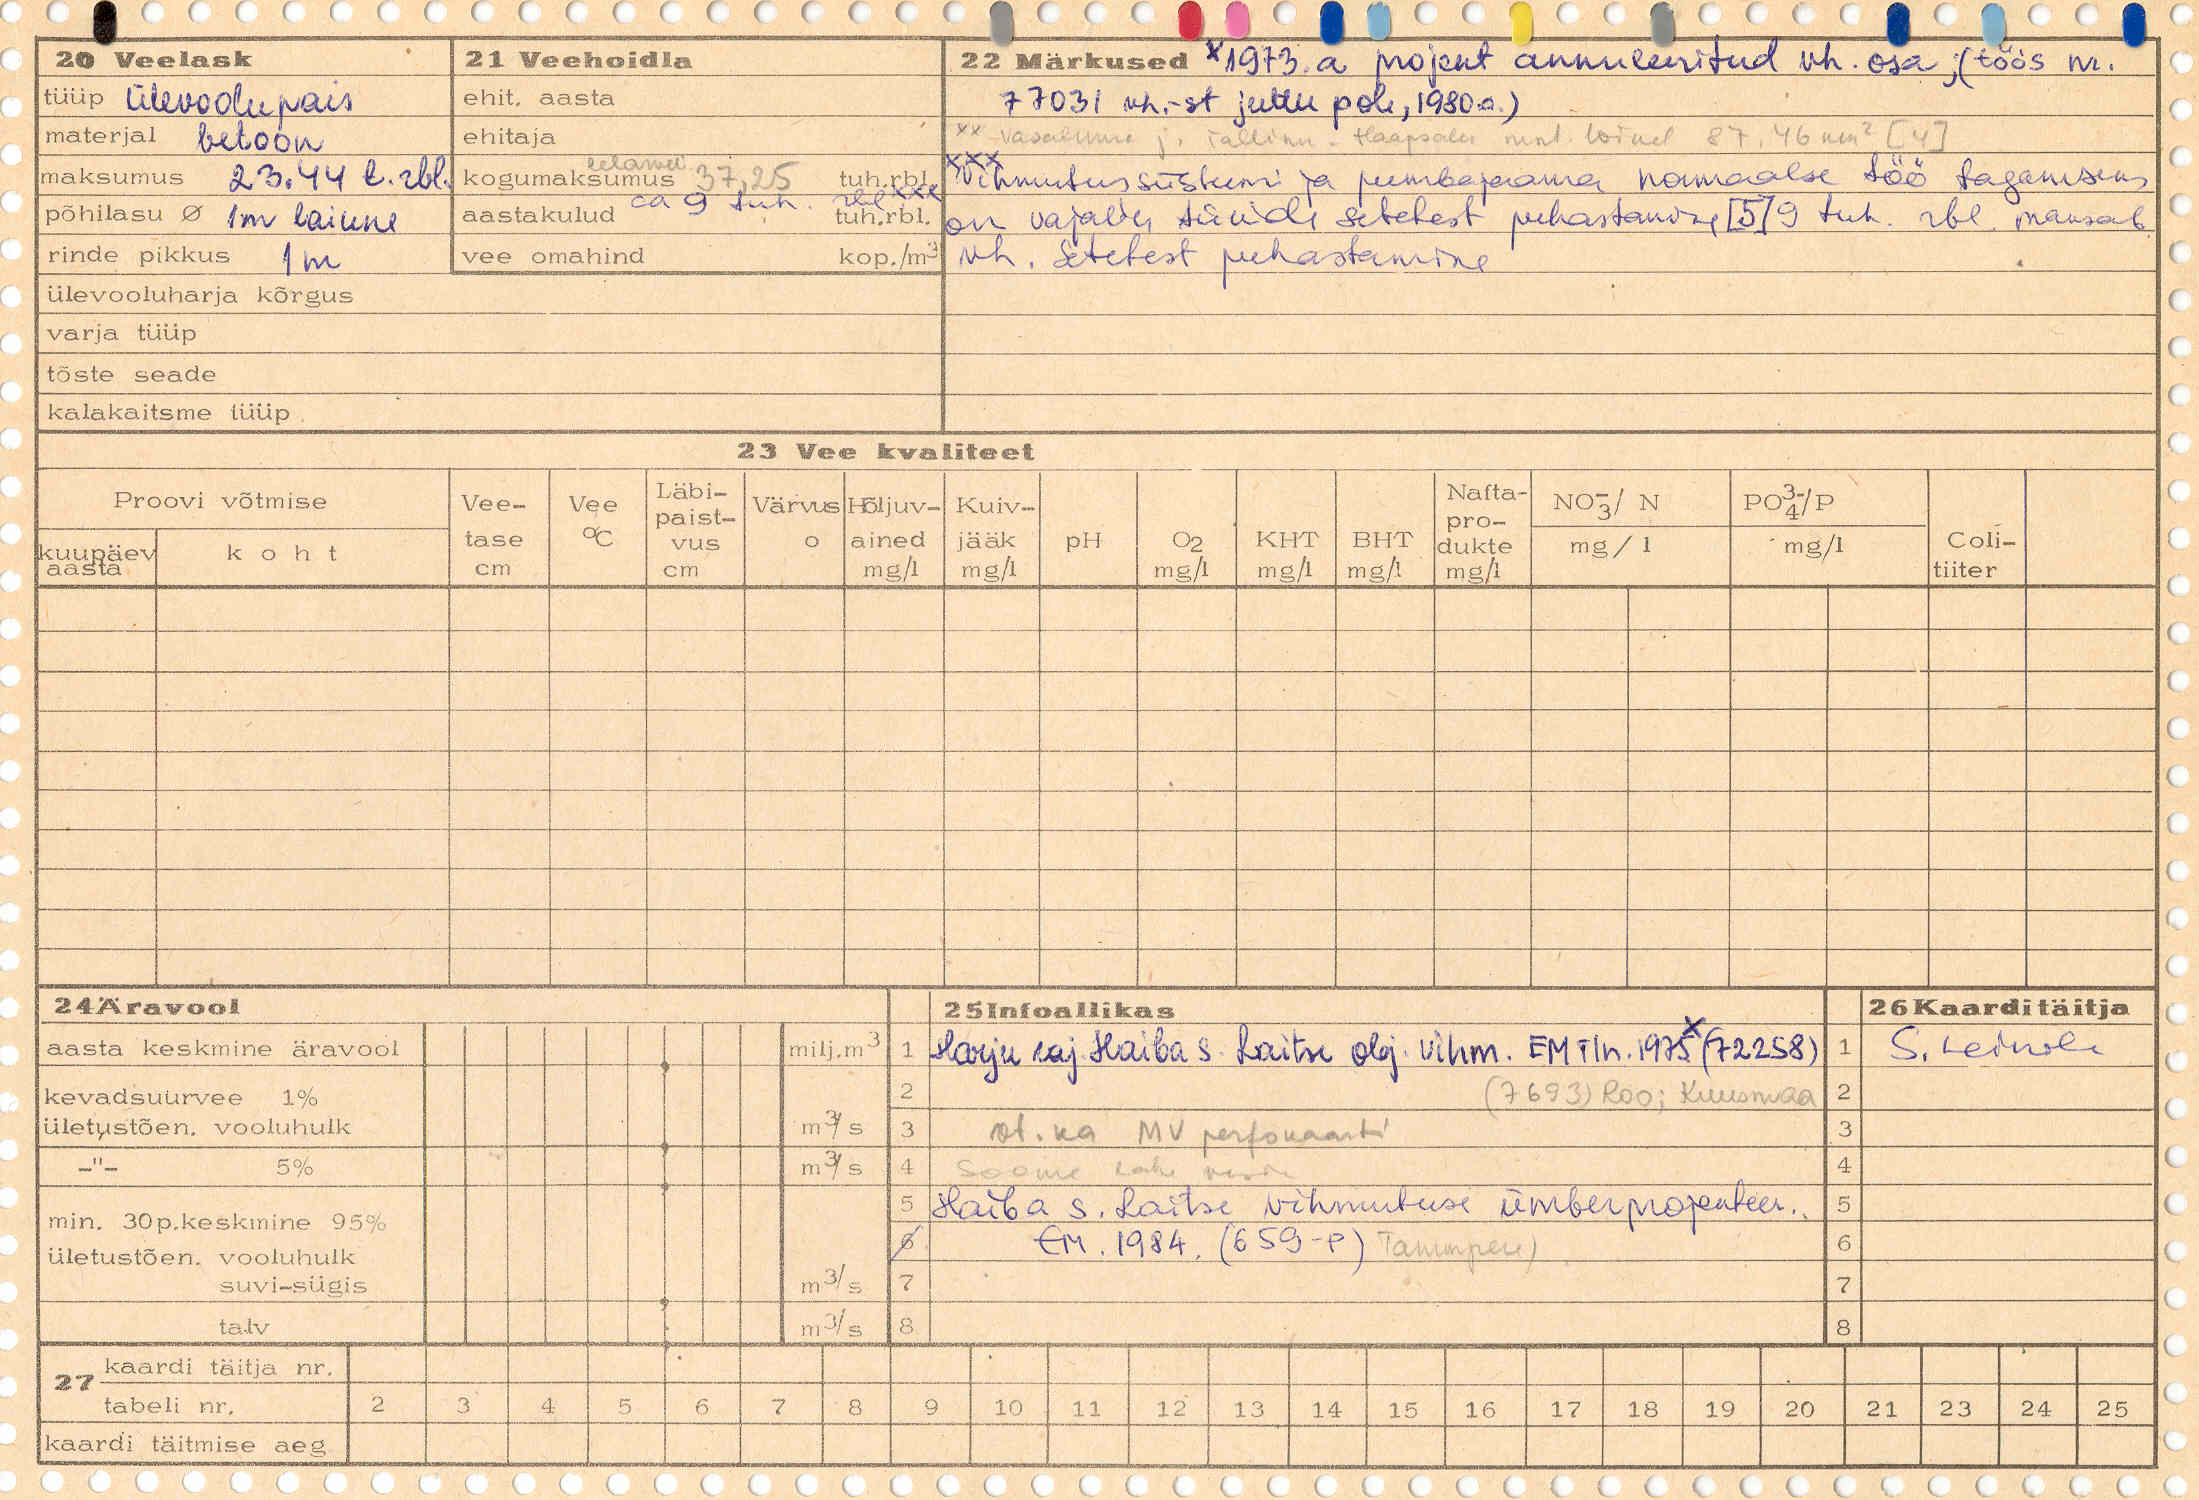 20 Veelask
tüüp ülevoolupais
materjal betoon
maksumus 23.44 t.rbl.
põhilasu Ø 1m laiune
rinde pikkus 1m
ülevooluharja kõrgus
varja tüüp
tõste seade
kalakaitsme tüüp
21 Veehoidla
ehit. aasta
ehitaja
kogumaksumus 37,25 tuh.rbl.
ca 9 tuh. rbl xxx
aastakulud tuh.rbl.
vee omahind kop./m³
22 Märkused x 1973.a projekt annuleeritud vh. osa ;(töös nr.
77031 vh.-st juttu pole, 1980.a.)
xx Vasalemma j. Tallinn - Haapsalu mnt. 87,46 km² [4]
xxx Vihmutussüsteemi ja pumbajaama normaalse töö tagamiseks
on vajalik tiikide setetest puhastamine [5] 9 tuh. rbl. maksab
vh. setetest puhastamine
23 Vee kvaliteet
Proovi võtmise
kuupäev aasta
koht
Vee-tase cm
Vee °C
Läbi-paist-vus cm
Värvus o
Hõljuv-ained mg/l
Kuiv-jääk mg/l
pH
O2 mg/l
KHT mg/l
BHT mg/l
Nafta-pro-dukte mg/l
NO3-/N mg/l
PO4 3-/P mg/l
Coli-tiiter
24 Äravool
aasta keskmine äravool milj.m³
kevadsuurvee 1%
ületustõen. vooluhulk m³/s
-"- 5% m³/s
min. 30p.keskmine 95%
ületustõen. vooluhulk
suvi-sügis m³/s
talv m³/s
25 Infoallikas
1 Harju raj. Haiba s. Laitse obj. vihm. EM Tln. 1975 x (72258)
2 (7693) Roo; Kuusmaa
3 vt. ka MV perfokaarti
4 Soome lahe
5 Haiba s. Laitse vihmutuse ümberprojekteer.
6 EM. 1984. (659-P)
7
8
26 Kaarditäitja
1
2
3
4
5
6
7
8
27 kaardi täitja nr.
tabeli nr. 2 3 4 5 6 7 8 9 10 11 12 13 14 15 16 17 18 19 20 21 23 24 25
kaardi täitmise aeg